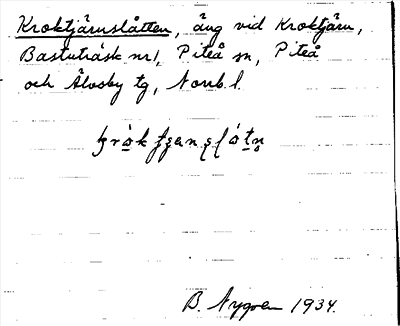 Kroktjärnslåtten, äng vid Kroktjärn,
Bastuträsk nr 1, Piteå sn, Piteå
och Älvsby tg, Norrb. l.
B. Nygren 1934.